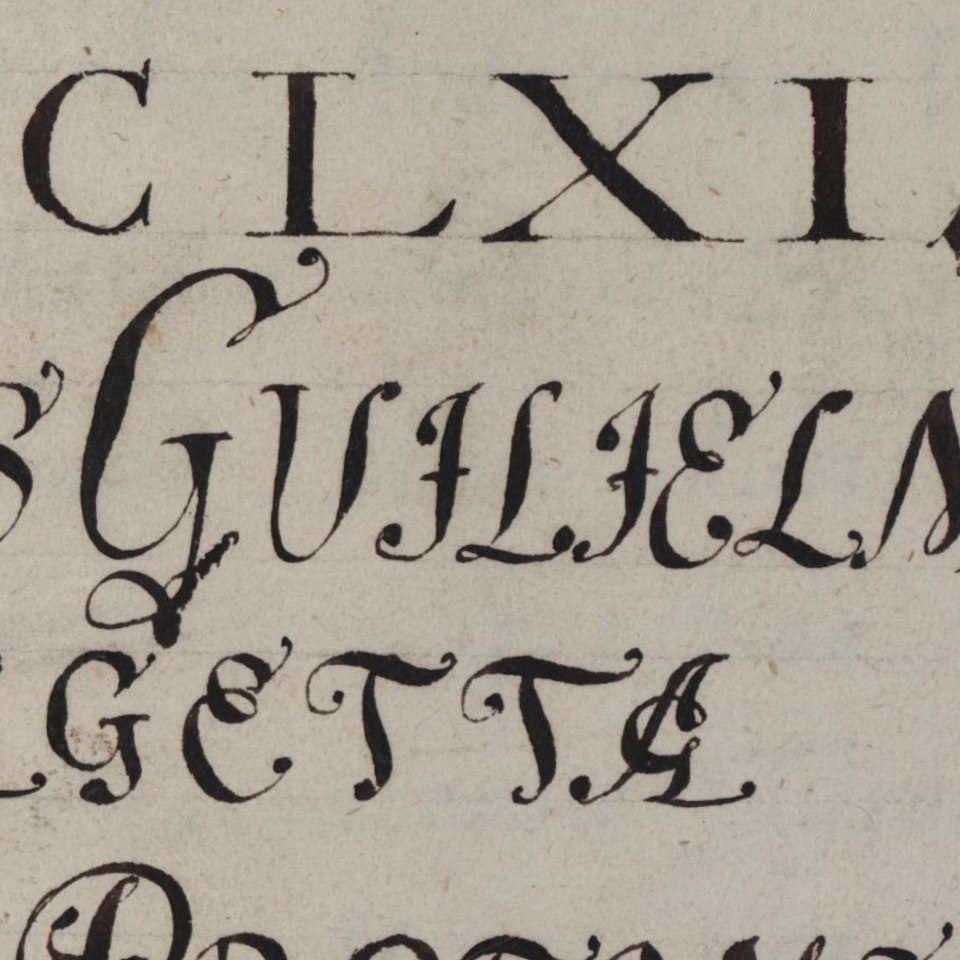 CLXI
GUILIELM
GETTA